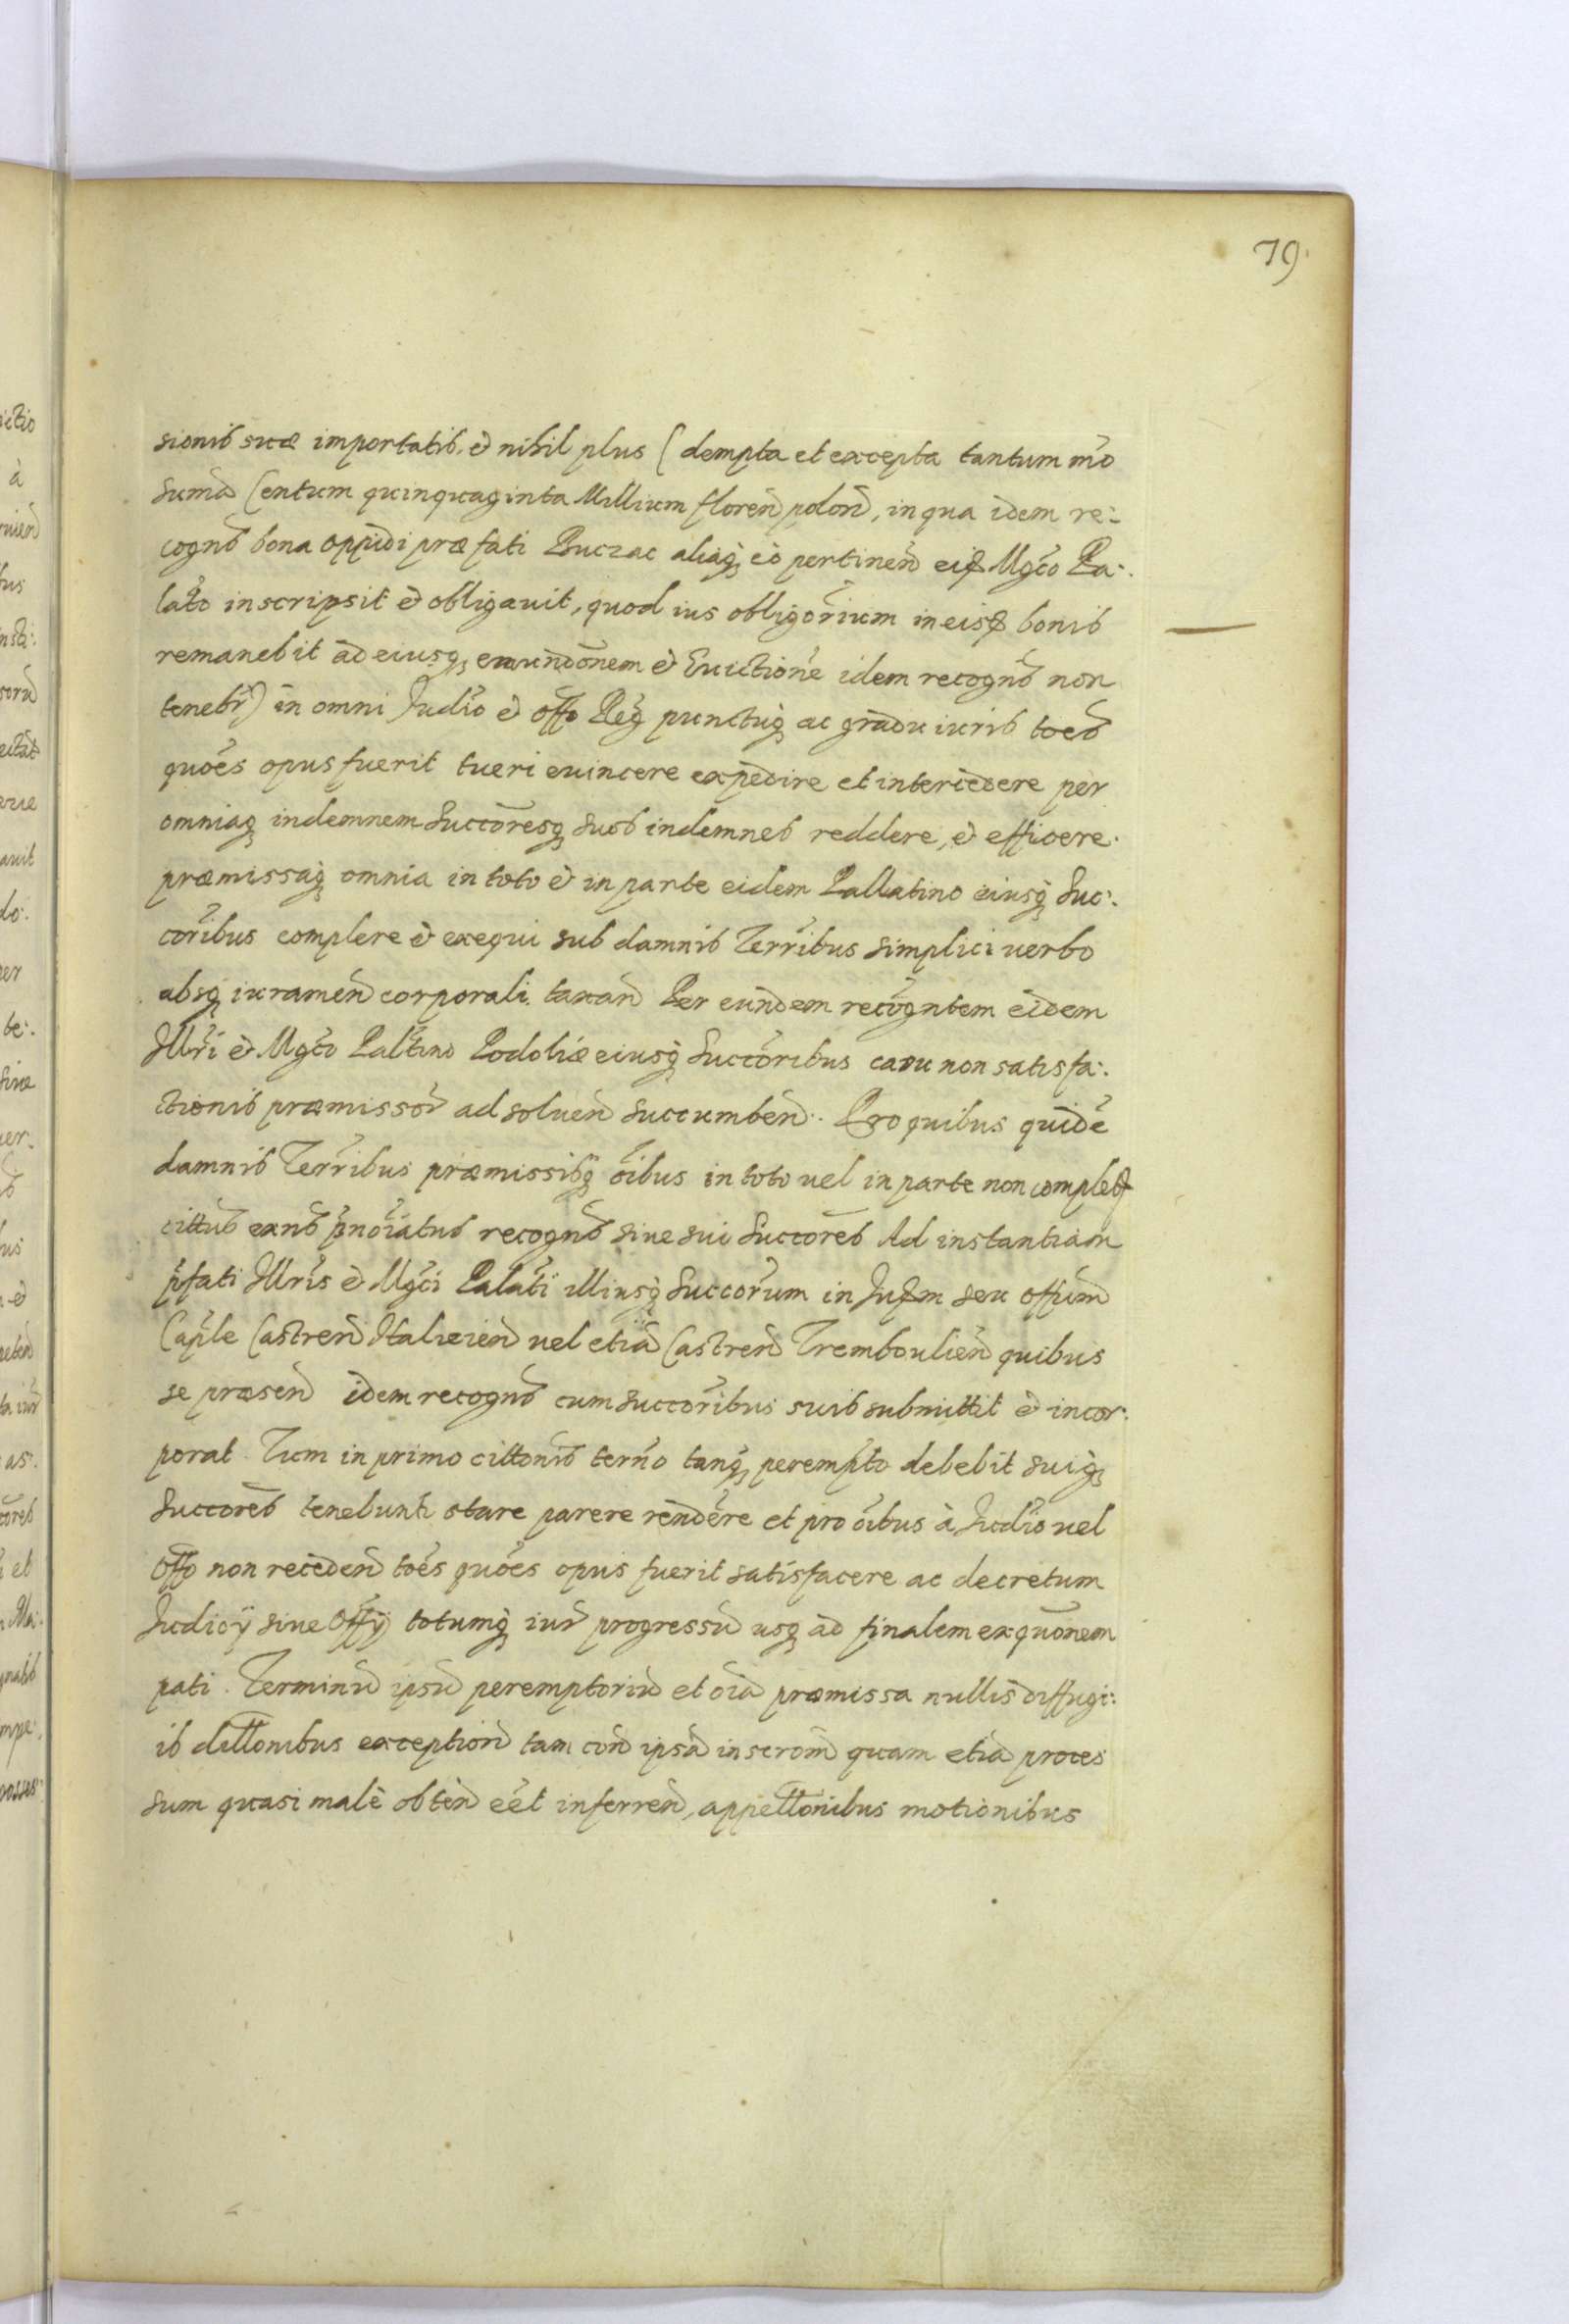 79.
sionis suæ importatis. et nihil plus ( dempta et excepta tantum mõ
Sumã Centum quinquaginta Millium floreñ poloñ, in qua idem re:
cogns̃ bona oppidi præfati Buczac aliaq̨ eo pertineñ eiđ Mgco Pa:
lato inscripsit et obligauit, quod ius obligorium in eisđ bonis
remanebit ad eiusq̨ euundonem et Euictione idem recogns̃ non
tenebr̃) in omni Judio et offo Reg̃ punctuq̨ ac gradu iuris toes̃
quoẽs opus fuerit tueri euincere expedire et intercedere per
omniaq̨ indemnem Succoresq̨ suos indemnes reddere, et efficere.
præmissaq̨ omnia in toto et in parte eidem Pallatino eiusq̨ Suc:
coribus complere et exequi sub damnis Terribus simplici uerbo
absq̨ iurameñ corporali taxañ Per eundem recogntem eidem
Illri et Mgco Paltino Podoliæ eiusq̨ Succoribus casu non satisfa:
ctionis præmissor̃ ad solueñ succumbeñ. Pro quibus quidẽ
damnis Terribus præmissisq̨ oĩbus in toto uel in parte non complet̃
cittus̃ exns̃ p̃noiatus recogns̃ siue sui Succores Ad instantiam
p̃fati Illris et Mgci Palati illiusq̨ Succorum in Juđm seu offium̃
Caple Castreñ Halicieñ uel etiã Castreñ Tremboulieñ quibus
se præseñ idem recogns̃ cum succoribus suis submittit et incor:
porat. Tum in primo cittonis terno tanq̨ perempto debebit suiq̨
Succores tenebunt̃ stare parere rendere et pro oĩbus à Judio uel
Offo non recedeñ toẽs quoẽs opus fuerit satisfacere ac decretum
Judicij siue Offij totumq̨ iur̃ progressũ usq̨ ad finalem exquonem
pati. Terminũ ipsũ peremptoriũ et oĩa præmissa nullis diffugi:
is dillonibus exceptioñ tam coñ ipsã inscrom̃ quam etiã proces
sum quasi malè obteñ eẽt inferreñ, appellonibus motionibus